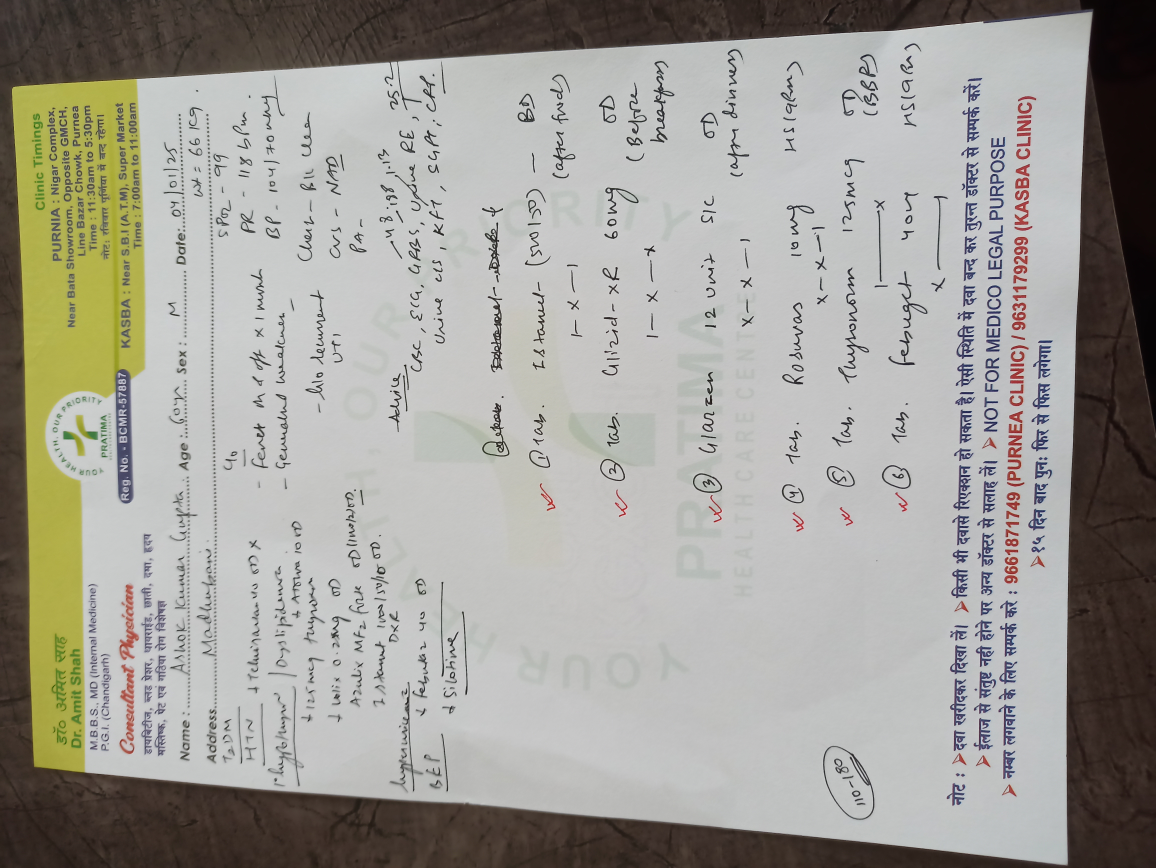 डॉ० अमित साह
Dr. Amit Shah
M.B.B.S., MD (Internal Medicine)
P.G.I. (Chandigarh)
Consultant Physician
डायबिटीज, ब्लड प्रेशर, थायराईड, छाती, दमा, हृदय
मस्तिष्क, पेट एवं गठिया रोग विशेषज्ञ
YOUR HEALTH, OUR PRIORITY
PRATIMA
Reg. No. - BCMR-57887
Clinic Timings
PURNIA : Nigar Complex,
Near Bata Showroom, Opposite GMCH,
Line Bazar Chowk, Purnea
Time : 11:30am to 5:30pm
नोट: रविवार पुर्णिया में बन्द रहेगा।
KASBA : Near S.B.I (A.T.M), Super Market
Time : 7:00am to 11:00am
Name : Ashok Kumar Gupta Age : 60yr Sex : M Date: 04/01/25
Address Madhubani wt = 66 kg.
T2DM
HTN
Telmisartan 40 OD
Hypothyroid / Dyslipidemia
125mcg
OD
Azulix MF2 forte OD
Istamet
DXR
hyperuricemia
Febutaz 40 OD
BEP
Silotime
C/o
- Fever on & off x 1 month
- Generalised weakness
- h/o recurrent
UTI
SPO2 - 99
PR - 118 bpm.
BP - 104/70 mmHg
Chest - B/L clear
CVS - NAD
PA -
Advice
CBC, ECG, GRBS, Urine RE,
Urine c/s, KFT, SGPT, CRP.
① Tab. Istamet - (50/500) — BD
1 - x - 1 (after food)
② Tab. Glizid-XR 60mg OD
1 - x - x (Before breakfast)
③ Glarzen 12 Unit S/C OD
x - x - 1 (after dinner)
④ Tab. Rosuvas 10mg HS (9pm)
x - x - 1
⑤ Tab. Thyronorm 125mcg OD
1 — x (BBF)
⑥ Tab. Febuget 40mg HS (9pm)
x
110-180
YOUR HEALTH, OUR PRIORITY
PRATIMA
HEALTH CARE CENTRE
नोट : ➤ दवा खरीदकर दिखा लें। ➤ किसी भी दवासे रिएक्शन हो सकता है। ऐसी स्थिति में दवा बन्द कर तुरन्त डॉक्टर से सम्पर्क करें।
➤ ईलाज से संतुष्ट नही होने पर अन्य डॉक्टर से सलाह लें। ➤ NOT FOR MEDICO LEGAL PURPOSE
➤ नम्बर लगवाने के लिए सम्पर्क करे : 9661871749 (PURNEA CLINIC) / 9631179299 (KASBA CLINIC)
➤ १५ दिन बाद पुनः फिर से फिस लगेगा।